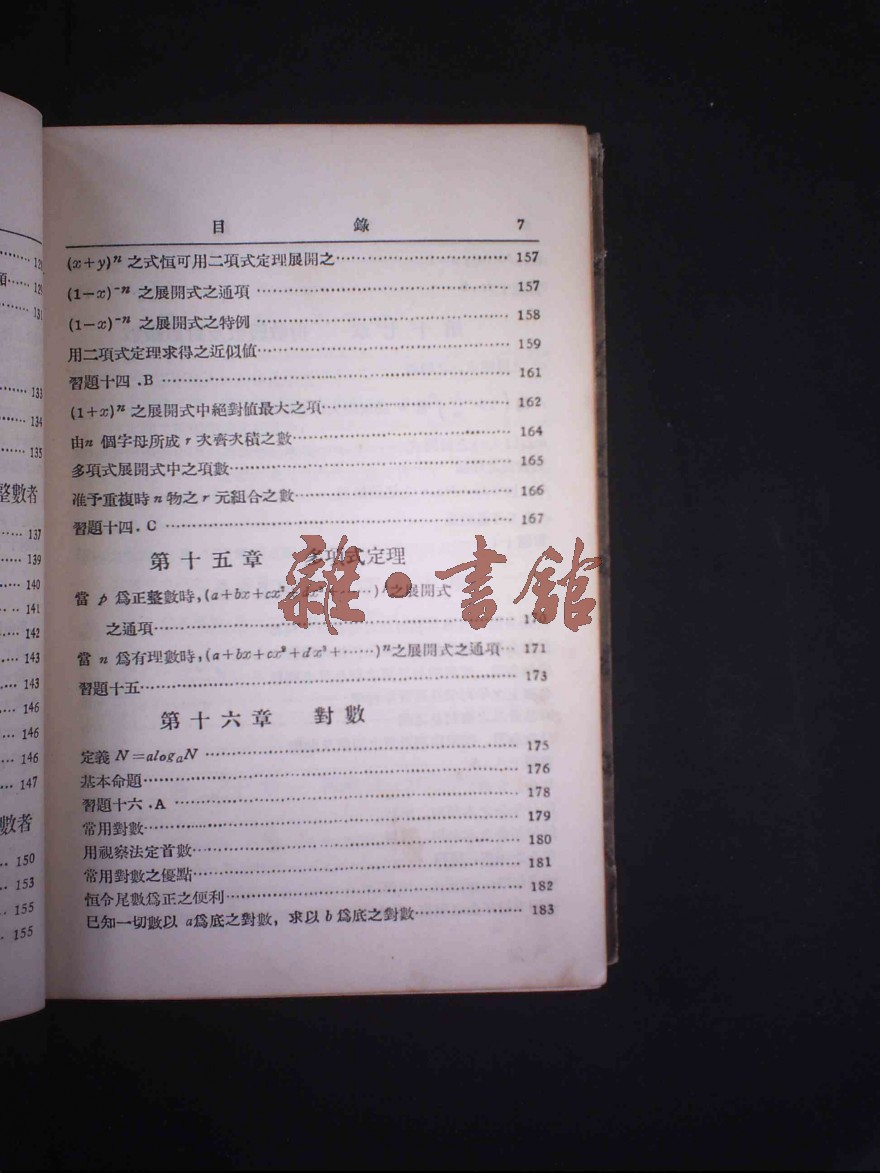 目 錄 7
(x+y)ⁿ 之式恒可用二項式定理展開之 157
(1-x)⁻ⁿ 之展開式之通項 157
(1-x)⁻ⁿ 之展開式之特例 158
用二項式定理求得之近似值 159
習題十四.B 161
(1+x)ⁿ 之展開式中絕對值最大之項 162
由n 個字母所成 r 次齊次積之數 164
多項式展開式中之項數 165
准予重複時 n 物之 r 元組合之數 166
習題十四.C 167
第十五章 多項式定理
當 p 爲正整數時,(a+bx+cx²+dx³+……)ᵖ之展開式
之通項 170
當 n 爲有理數時,(a+bx+cx²+dx³+……)ⁿ之展開式之通項 171
習題十五 173
第十六章 對數
定義 N=alogₐN 175
基本命題 176
習題十六.A 178
常用對數 179
用視察法定首數 180
常用對數之優點 181
恒令尾數爲正之便利 182
已知一切數以 a爲底之對數, 求以 b 爲底之對數 183
雜·書館
129
131
133
134
135
整數者
137
139
140
141
142
143
143
146
146
146
147
數者
150
153
155
155